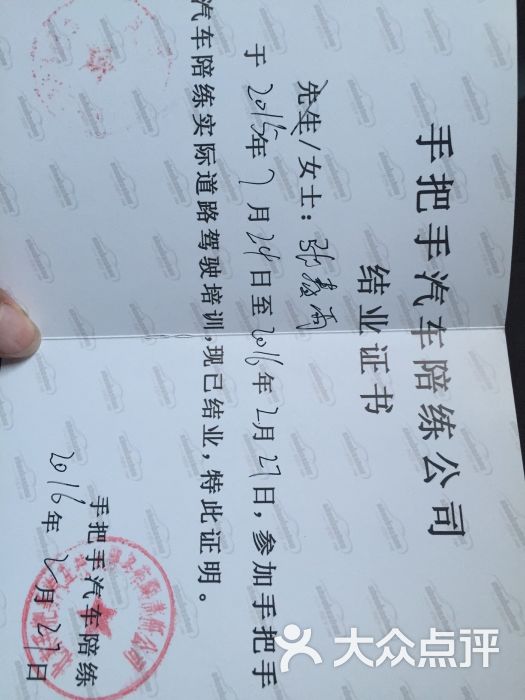 手把手汽车陪练公司
结业证书
先生/女士：张春雨
于2015年7月24日至2016年2月27日，参加手把手
汽车陪练实际道路驾驶培训，现已结业，特此证明。
手把手汽车陪练
2016年2月27日
大众点评